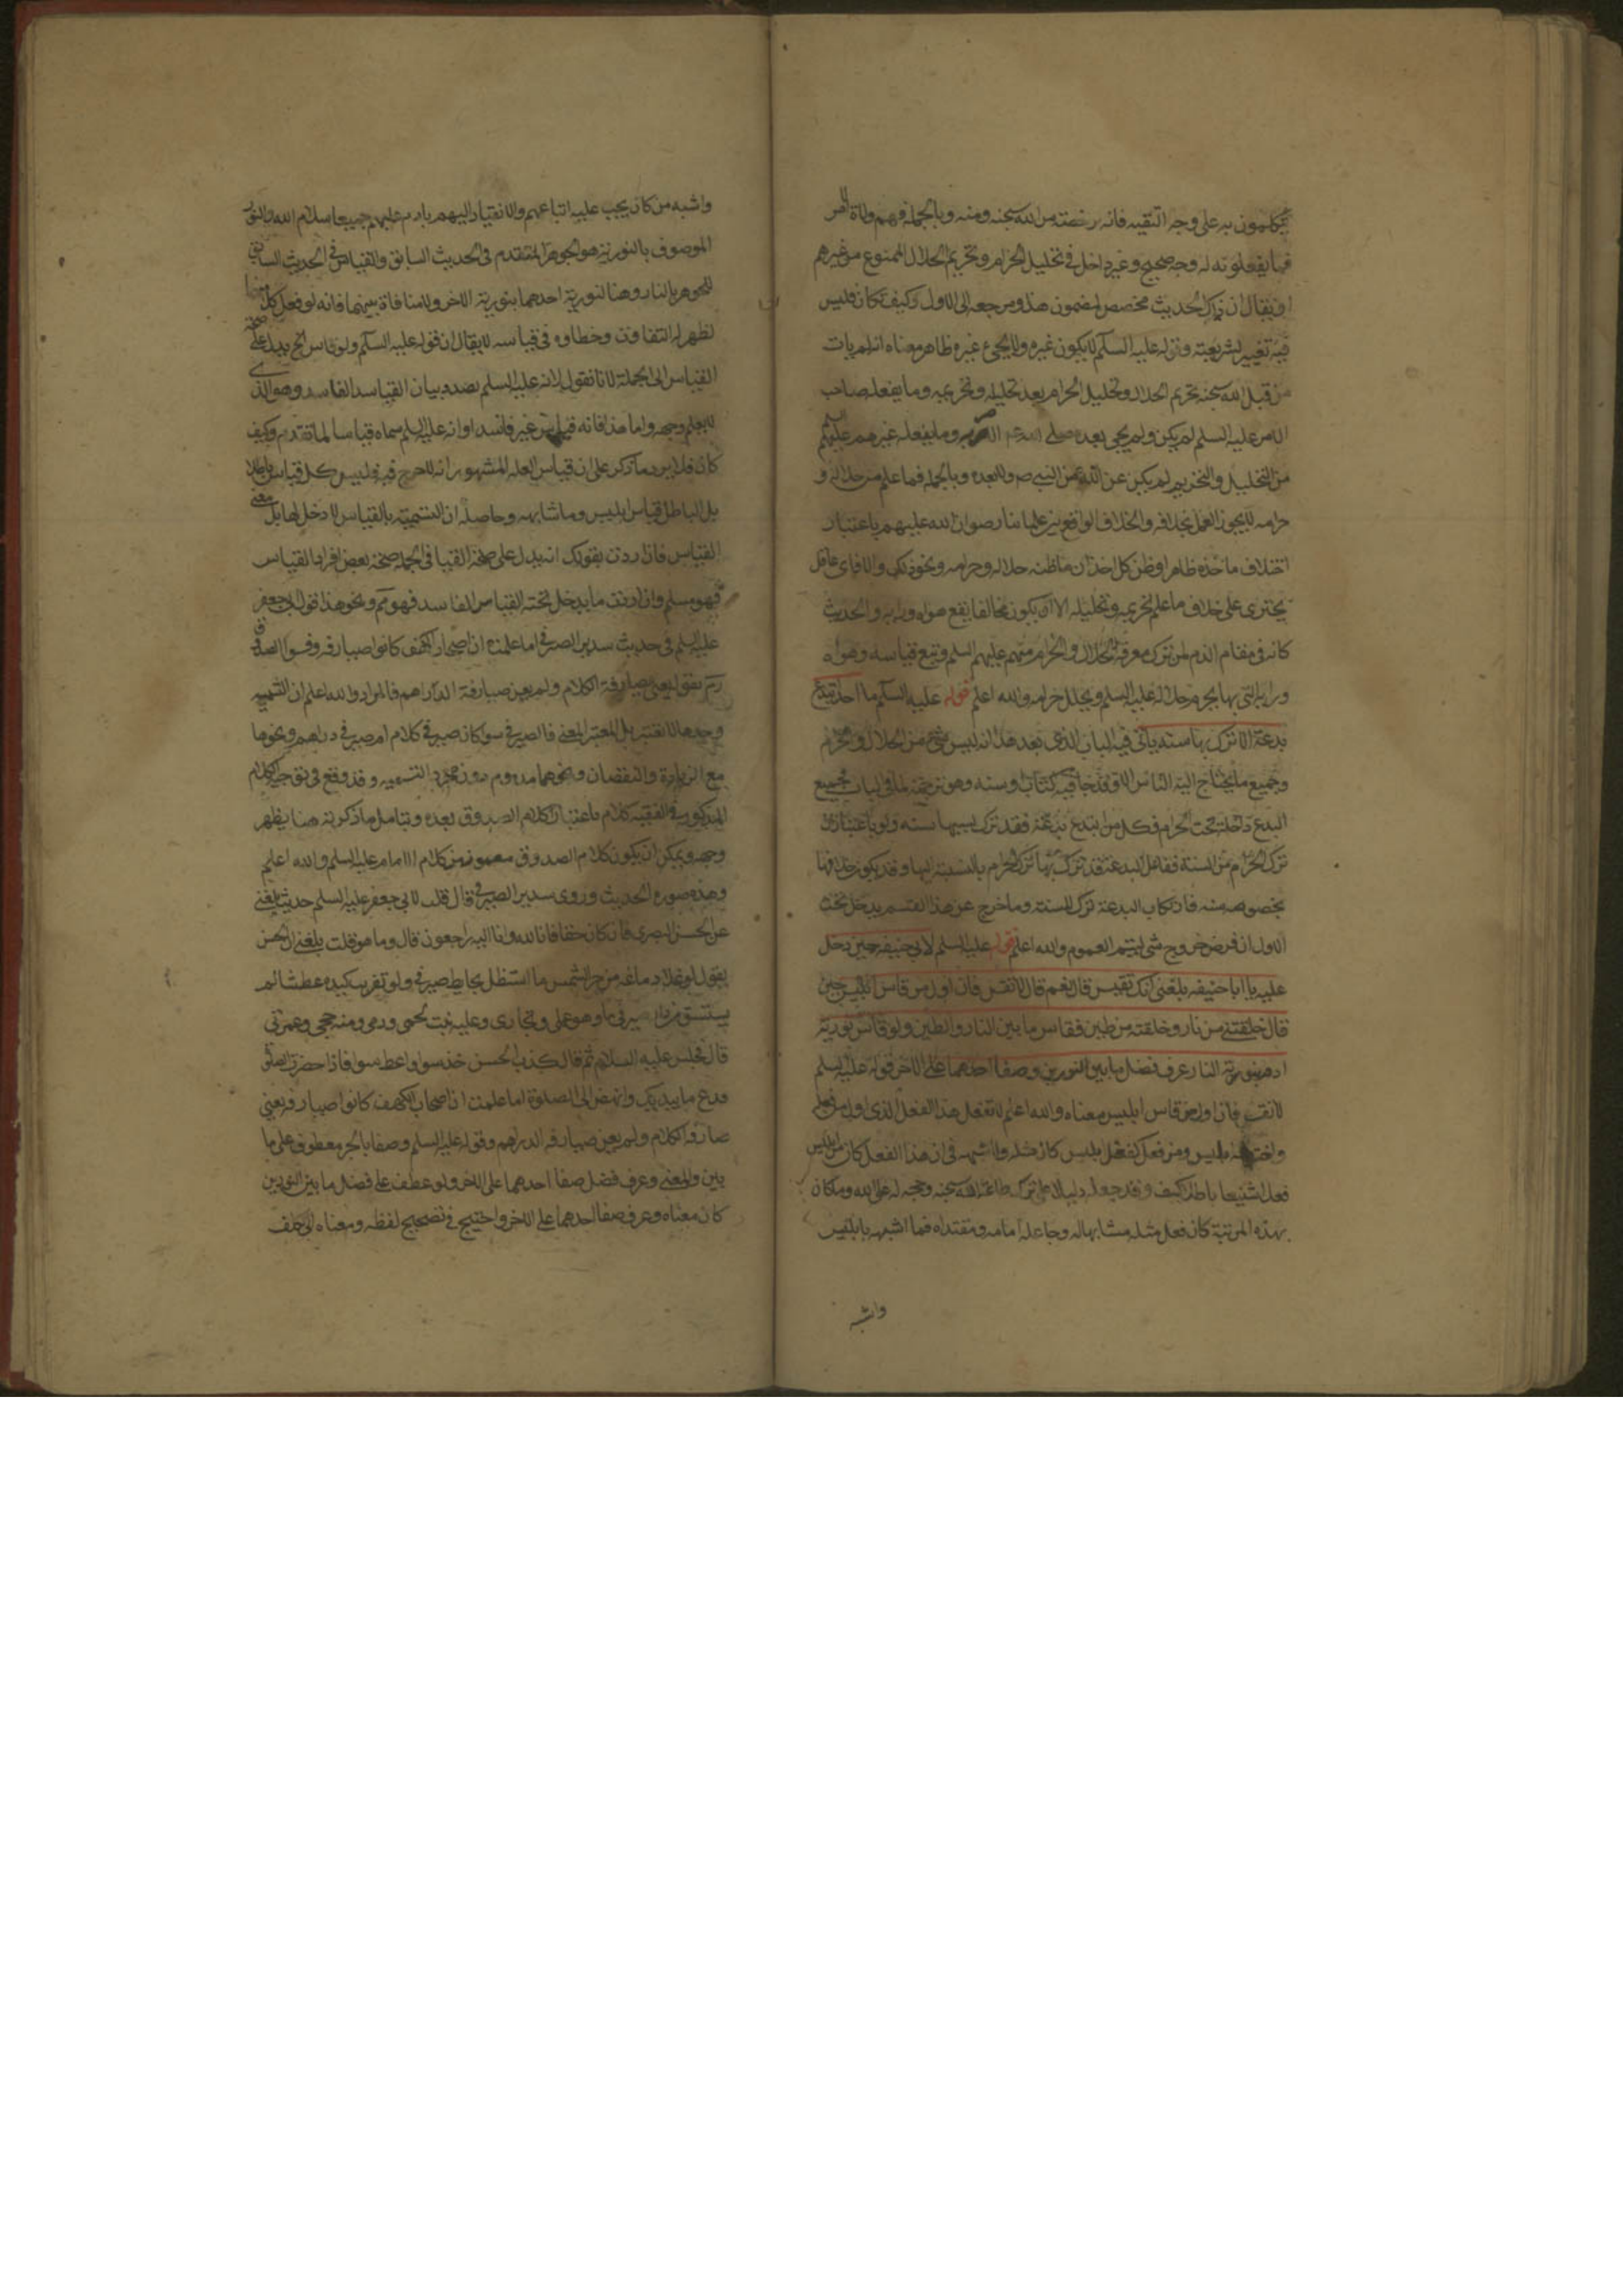 يحكمون به على وجه التقيه فانه رخصته من الله سبحنه ومنه وبالجملة فهم ولاة الامر
فما يفعلونه له وجه صحيح وغير داخل في تحليل الحرام وتحريم الحلال الممنوع من غيرهم
او يقال ان ذاك الحديث مخصص لمضمون هذا ومرجعه الى الاول وكيف كان فليس
فيه تغيير لشريعته وقوله عليه السلم لا يكون غيره ولا يجئ غيره ظاهر معناه انه لم يات
من قبل الله سبحنه تحريم الحلال وتحليل الحرام بعد تحليله وتحريمه وما يفعله صاحب
الامر عليه السلم لم يكن ولم يجئ بعده صلى الله عليه وما يفعله غيرهم عليهم السلم
من التحليل والتحريم لم يكن عن الله عن النبي ص ولا بعده وبالجملة فما علم من حلاله و
حرامه لا يجوز العمل بخلافه والخلاف الواقع بين علمائنا رضوان الله عليهم باعتبار
اختلاف ماخذه ظاهرا وظن كل احد ان ما ظنه حلاله وحرامه ونحو ذلك والا فاي عاقل
يجترى على خلاف ما علم تحريمه وتحليله الا ان يكون مخالفا يقع هواه ورايه والحديث
كانه في مقام الذم لمن ترك معرفة الحلال والحرام منهم عليهم السلم وتبع قياسه وهواه
ورايه التي بها يحرم حلاله عليه السلم ويحلل حرامه والله اعلم قوله عليه السلم ما احد ابتدع
بدعة الا ترك بها سنة ياتي في الباب الذي بعد هذا انه ليس شئ من الحلال والحرام
وجميع ما يحتاج اليه الناس الا وقد جا فيه كتاب او سنه وهو ترجمة لما في الباب فجميع
البدع داخلة تحت الحرام فكل من ابتدع بدعة فقد ترك بسببها سنه ولو باعتبار ان
ترك الحرام من السنة ففاعل البدعة قد ترك بها ترك الحرام بالنسبة اليها وقد يكون خلافها
بخصوصه منه فارتكاب البدعة ترك للسنة وما خرج عن هذا القسم يدخل تحت
الاول ان فرض خروج شئ ليتم العموم والله اعلم قوله عليه السلم لابي حنيفه حين دخل
عليه يا ابا حنيفه بلغني انك تقيس قال نعم قال لا تقس فان اول من قاس ابليس حين
قال خلقتني من نار وخلقته من طين فقاس ما بين النار والطين ولو قاس نورية
ادم بنورية النار عرف فضل ما بين النورين وصفا احدهما على الاخر قوله عليه السلم
لا تقس فان اول من قاس ابليس معناه والله اعلم لا تفعل هذا الفعل الذي اول من فعله
ابليس ومن فعل كفعل ابليس كان مثله واشبهه في ان هذا الفعل كان من ابليس
فعلا شنيعا باطلا كيف وقد جعله دليلا على ترك طاعة الله سبحنه وحجه له على الله وما كان
بهذه المرتبة كان فعل مثله مشابها له وجاعله امامه ومقتداه فما اشبهه بابليس
واشبه
واشبه من كان يجب عليه اتباعهم والانقياد اليهم بادم عليهم جميعا سلام الله والنور
الموصوف بالنورية هو الجوهر المتقدم في الحديث السابق والقياس في الحديث السابق
للجوهر بالنار وهنا لنورية احدهما بنورية الاخر ولا منافاة بينهما فانه لو فعل كل منهما
لظهر له التفاوت وخطاوه في قياسه لا يقال ان قوله عليه السلم ولو قاس الخ يدل على صحة
القياس الى الجملة لانا نقول لانه عليه السلم بصدد بيان القياس الفاسد وهو الذي
لا يعلم وجهه واما هذا فانه قياس غير فاسد او انه عليه السلم سماه قياسا لما تقدم وكيف
كان فلا يرد ما ذكر على ان قياس العله المشهور انه لا حرج فيه فليس كل قياس باطلا
بل الباطل قياس ابليس وما شابهه وحاصله ان التسميه بالقياس لا دخل لها بل معنى
القياس فان اردت بقولك انه يدل على صحة القياس في الجمله صحة بعض افراد القياس
فهو مسلم وان اردت ما يدخل تحته القياس الفاسد فهو مم ونحو هذا قول ابي جعفر
عليه السلم في حديث سدير الصيرفي اما علمت ان اصحاب الكهف كانوا صيارفه وفسره الصدوق
ره بقوله يعني صيارفة الكلام ولم يعن صيارفة الدراهم فالمراد والله اعلم ان التسميه
وحدها لا تعتبر بل المعتبر المعنى فالصيرفي سوا كان صيرفي كلام ام صيرفي دراهم ونحوها
مع الزيادة والنقصان ونحوهما مذموم دون مجرد التسميه وقد وقع في توجيه الكلام
المذكور في الفقيه كلام باعتبار كلام الصدوق بعده وبتامل ما ذكرته هنا يظهر
وجهه ويمكن ان يكون كلام الصدوق من كلام الامام عليه السلم والله اعلم
وهذه صورة الحديث وروى سدير الصيرفي قال قلت لابي جعفر عليه السلم حديث بلغني
عن الحسن البصري فان كان حقا فانا لله وانا اليه راجعون قال وما هو قلت بلغني ان الحسن
يقول لو غلا دماغه من حر الشمس ما استظل بحايط صيرفي ولو تفرث كبده عطشا لم
يستسق من دار صيرفي ماء وهو عملي وتجارتي وعليه نبت لحمى ودمي ومنه حجى وعمرتي
قال فجلس عليه السلام ثم قال كذب الحسن خذ سوا واعط سوا فاذا حضرت الصلوة
فدع ما بيدك وانهض الى الصلوة اما علمت ان اصحاب الكهف كانوا صيارفه يعني
صيارفة الكلام ولم يعن صيارفه الدراهم وقوله عليه السلم وصفا بالجر معطوف على ما
بين والمعنى وعرف فضل صفا احدهما على الاخر ولو عطف على فضل ما بين النورين
كان معناه وعرف صفا احدهما على الاخر واحتيج في تصحيح لفظه ومعناه الى تكلف